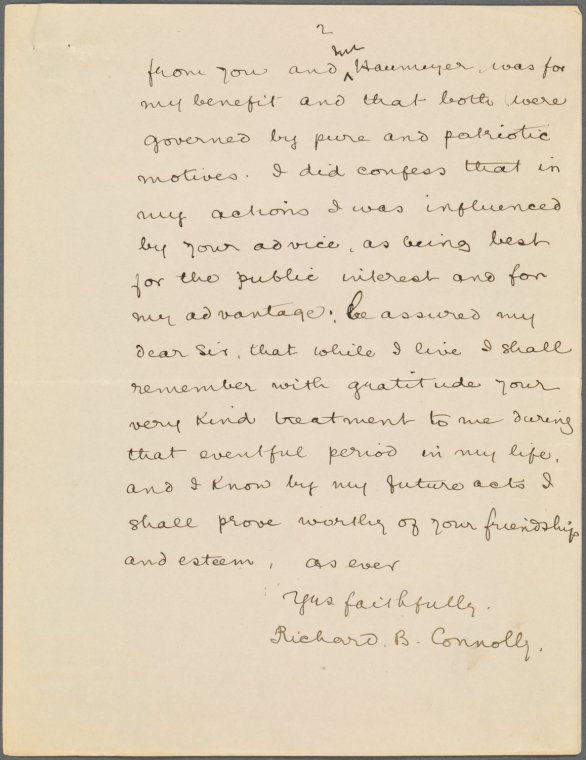 2
from you and Mr Havemeyer, was for
my benefit and that both were
governed by pure and patriotic
motives. I did confess that in
my actions I was influenced
by your advice, as being best
for the public interest and for
my advantage; be assured my
dear Sir, that while I live I shall
remember with gratitude your
very kind treatment to me during
that eventful period in my life,
and I know by my future acts I
shall prove worthy of your friendship
and esteem, as ever
Yrs faithfully.
Richard. B. Connolly.